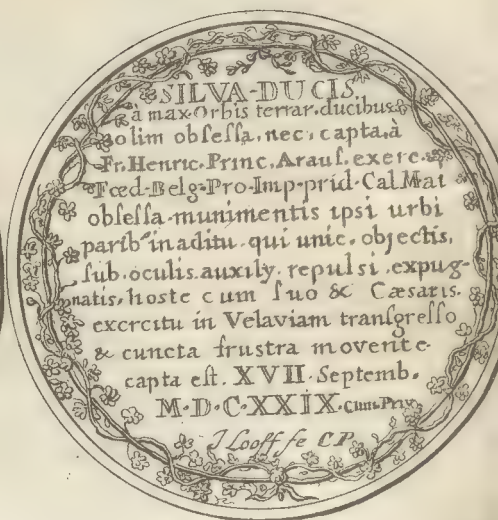 SILVA·DUCIS.
à max·Orbis terrar·ducibus
olim obſeſſa, nec, capta, à
Fr·Henric·Princ·Arauſ. exerc·
Fœd·Belg·Pro·Imp·prid·Cal.Mai
obſeſſa munimentis ipsi urbi
parib⁹ in aditu qui unic. objectis,
ſub. oculis. auxily. repulsi. expug-
natis, hoste cum ſuo & Cæsaris.
exercitu in Velaviam tranſgreſſo
& cuncta frustra movente
capta eſt. XVII. Septemb.
M·D·C·XXIX·Cum·Priv.
J Looff fe C.P.